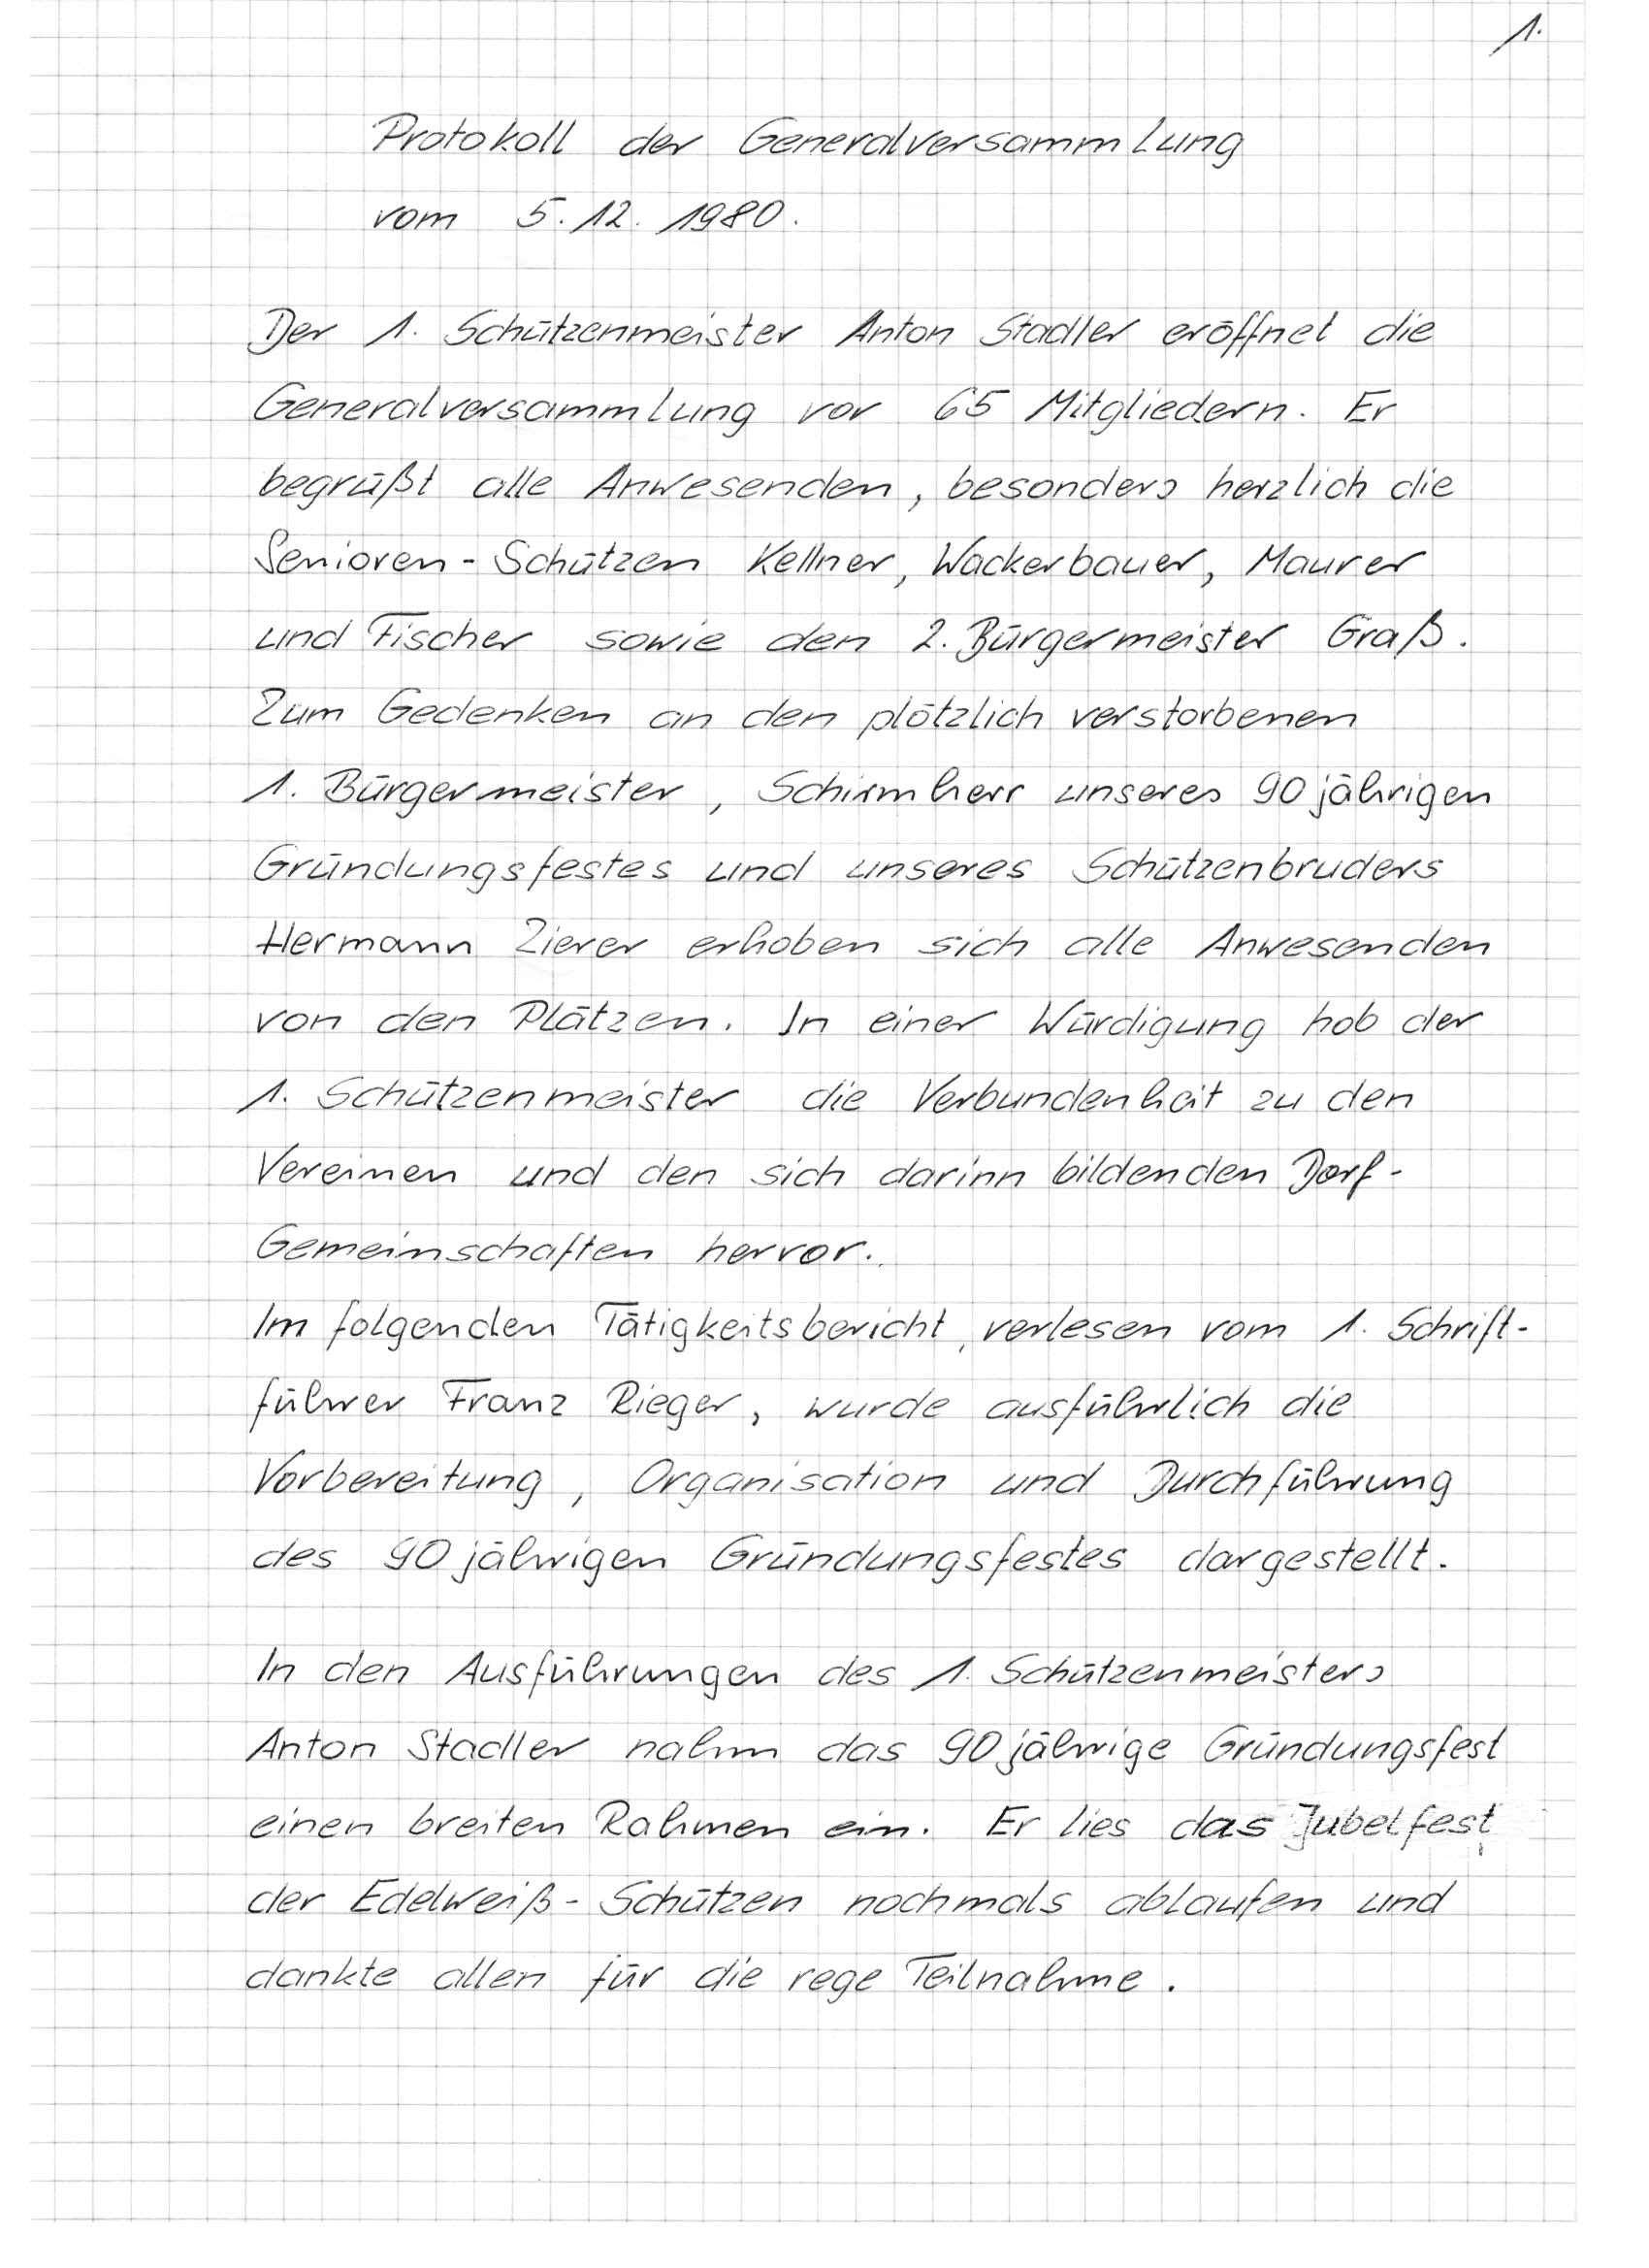 1.
Protokoll der Generalversammlung
vom 5.12.1980.
Der 1. Schützenmeister Anton Stadler eröffnet die
Generalversammlung vor 65 Mitgliedern. Er
begrüßt alle Anwesenden, besonders herzlich die
Senioren-Schützen Kellner, Wackerbauer, Maurer
und Fischer sowie den 2. Bürgermeister Graß.
Zum Gedenken an den plötzlich verstorbenen
1. Bürgermeister, Schirmherr unseres 90jährigen
Gründungsfestes und unseres Schützenbruders
Hermann Zierer erhoben sich alle Anwesenden
von den Plätzen. In einer Würdigung hob der
1. Schützenmeister die Verbundenheit zu den
Vereinen und den sich darinn bildenden Dorf-
Gemeinschaften hervor.
Im folgenden Tätigkeitsbericht, verlesen vom 1. Schrift-
führer Franz Rieger, wurde ausführlich die
Vorbereitung, Organisation und Durchführung
des 90jährigen Gründungsfestes dargestellt.
In den Ausführungen des 1. Schützenmeisters
Anton Stadler nahm das 90jährige Gründungsfest
einen breiten Rahmen ein. Er lies das Jubelfest
der Edelweiß-Schützen nochmals ablaufen und
dankte allen für die rege Teilnahme.